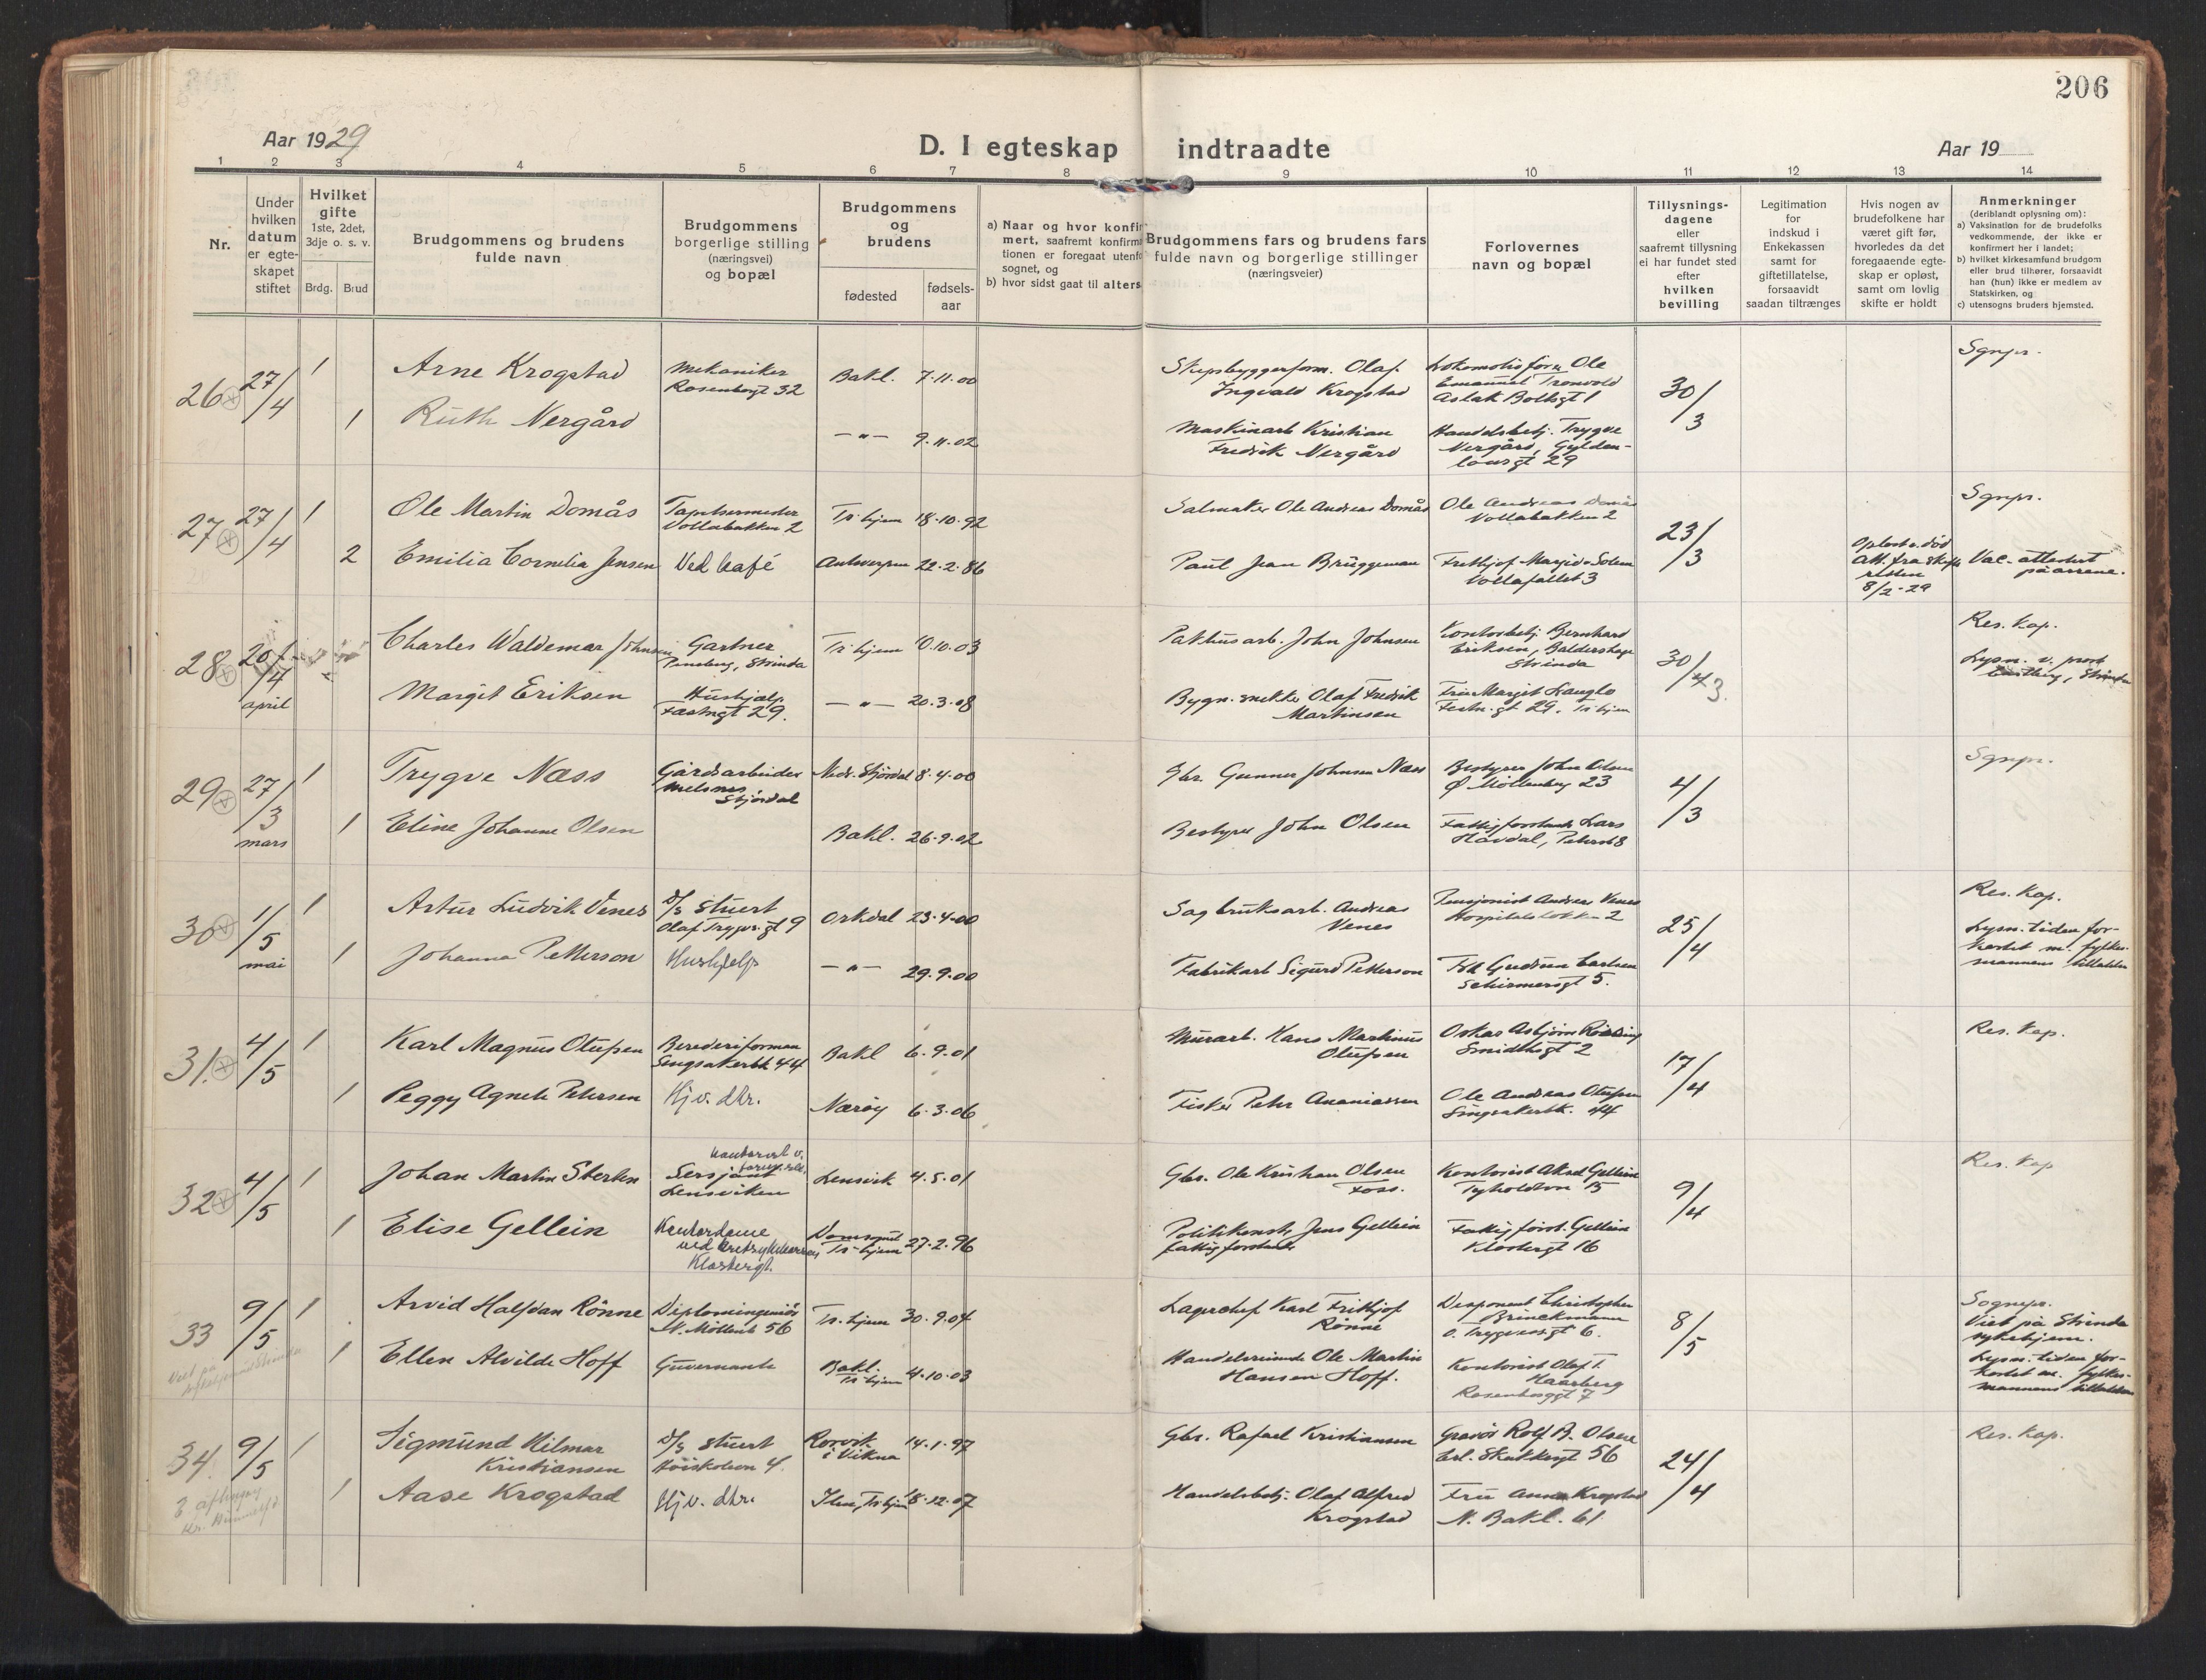 206
Aar 1929
D. I egteskap indtraadte
Aar 19
1 2 3 4 5 6 7 8 9 10 11 12 13 14
Nr.
Under hvilken datum er egte-skapet stiftet
Hvilket gifte 1ste, 2det, 3dje o. s. v.
Brdg. Brud
Brudgommens og brudens fulde navn
Brudgommens borgerlige stilling (næringsvei) og bopæl
Brudgommens og brudens
fødested
fødsels-aar
a) Naar og hvor konfir
mert, saafremt konfirm
tionen er foregaat utenfo
sognet, og
b) hvor sidst gaat til alters
Brudgommens fars og brudens fars fulde navn og borgerlige stillinger (næringsveier)
Forlovernes navn og bopæl
Tillysnings-dagene eller saafremt tillysning ei har fundet sted efter hvilken bevilling
Legitimation for indskud i Enkekassen samt for giftetillatelse, forsaavidt saadan tiltrænges
Hvis nogen av brudefolkene har været gift før, hvorledes da det foregaaende egte-skap er opløst, samt om lovlig skifte er holdt
Anmerkninger
(deriblandt oplysning om):
a) Vaksination for de brudefolks vedkommende, der ikke er konfirmert her i landet;
b) hvilket kirkesamfund brudgom eller brud tilhører, forsaavidt han (hun) ikke er medlem av Statskirken, og
c) utensogns bruders hjemsted.
26 27/4 1 Arne Krogstad Mekaniker Rosenborgt 32 Bakl. 7.11.00
Skipsbyggerform. Olaf Ingvald Krogstad
Lokomotivforer Ole Emanuel Tronvold Aslak Boltsgt 1
30/3 Sgnpr.
1 Ruth Nergård — " — 9.11.02
Maskinarb Kristian Fredrik Nergård
Handelsbetj. Trygve Nergård, Gylden-løvsgt 29
27 27/4 1 Ole Martin Domås Vollabakken 2 Tr.hjem 18.10.92
Salmaker Ole Andreas Domås
Ole Andreas Domås Vollabakken 2
23/3 Sgnpr.
2 Emilia Cornelia Jensen Ved kafé Antwerpen 22.2.86
Paul Jean Brüggeman
Vollafallet 3
Opløst v. død Att. fra Skifte retten 8/2-29
Vac-attestert på arrene.
28 20/4 april Charles Waldemar Johnsen Gartner Strinda Tr.hjem 10.10.03
Pakhusarb. John Johnsen
Kontorbetj Bernhard Eriksen, Strinda
30/3 Res. Kap.
Lysn. v. prost Strinda
Margit Eriksen Hushjelp Fæstngt 29. — " — 20.3.08
Bygn. snekker Olaf Fredrik Martinsen
Fru Margit Langlo Festn.gt 29. Tr.hjem
29 27/3 mars 1 Trygve Næss Gårdsarbeider Stjørdal Nedr. Stjørdal 8.4.00
Gbr. Gunner Johnsen Næss
Bestyrer John Olsen Ø Möllenberg 23
4/3 Sgnpr.
1 Eline Johanne Olsen Bakl. 26.9.02
Bestyrer John Olsen
Fattigforstander Lars Hovdal,
30 1/5 mai 1 Artur Ludvik Venes D/s Stuert Olaf Trygv.gt 9 Orkdal 23.4.00
Sagbruksarb. Andreas Venes
Pensjonist Andreas Venes Hospitalsløkken 2
25/4 Res. Kap.
Lysn. tiden for-kortet m. fylkes-mannens tillatelse
1 Johanna Petterson Hushjelp — " — 29.9.00
Fabrikarb Sigurd Petterson
Frk Gudrun Carlsen Schirmersgt 5.
31. 4/5 1 Karl Magnus Olufsen Berederiforman Singsakerbk 44 Bakl 6.9.01
Murarb. Hans Martinus Olufsen
Oskar Asbjørn Smidthsgt 2
17/4 Res. Kap.
1 Peggy Agnete Petersen Hj v. dtr. Nærøy 6.3.06
Fisker Peter Ananiassen
Ole Andreas Olufsen Singsakerbk. 44
32 4/5 1 Johan Martin Sterten Sersjant Lensviken Lensvik 4.5.01
Gbr. Ole Kristian Olsen Foss.
Kontorist Aksel Gellein 15
9/4 Res. Kap
1 Elise Gellein Kontordame ved Klostergt. Domsognet Tr.hjem 27.2.96
Politikonst. Jens Gellein fattigforstander
Fattigforst. Gellein Klostergt 16
33 9/5 1 Arvid Halfdan Rönne Diplomingeniör N. Möllenb 56 Tr.hjem 30.9.04
Lagerchef Karl Frithjof Rönne
Disponent Christopher Brinckmann O. Trygvasgt 6.
8/5 Sognepr.
Viet på Strinda sykehjem.
Lysn. tiden for-kortet m. fylkes-mannens tillatelse
1 Ellen Alvilde Hoff Guvernante Bakl. Tr.hjem 4.10.03
Handelsreisende Ole Martin Hansen Hoff.
Kontorist Olaf T. Haarberg Rosenborggt 7
Viet på sykehjem Strinda
34. 9/5 1 Sigmund Hilmar Kristiansen D/s Stuert Høiskolevn 4. Rørvik i Vikna 14.1.97
Gbr. Rafael Kristiansen
Gravør Rolf B. Olsen Erl. Skakkesgt 56
24/4 Res. Kap.
1 Aase Krogstad Hj v. dtr. Ilen, Tr.hjem 18.12.07
Handelsbetj. Olaf Alfred Krogstad
Fru Anna Krogstad N. Bakl. 61